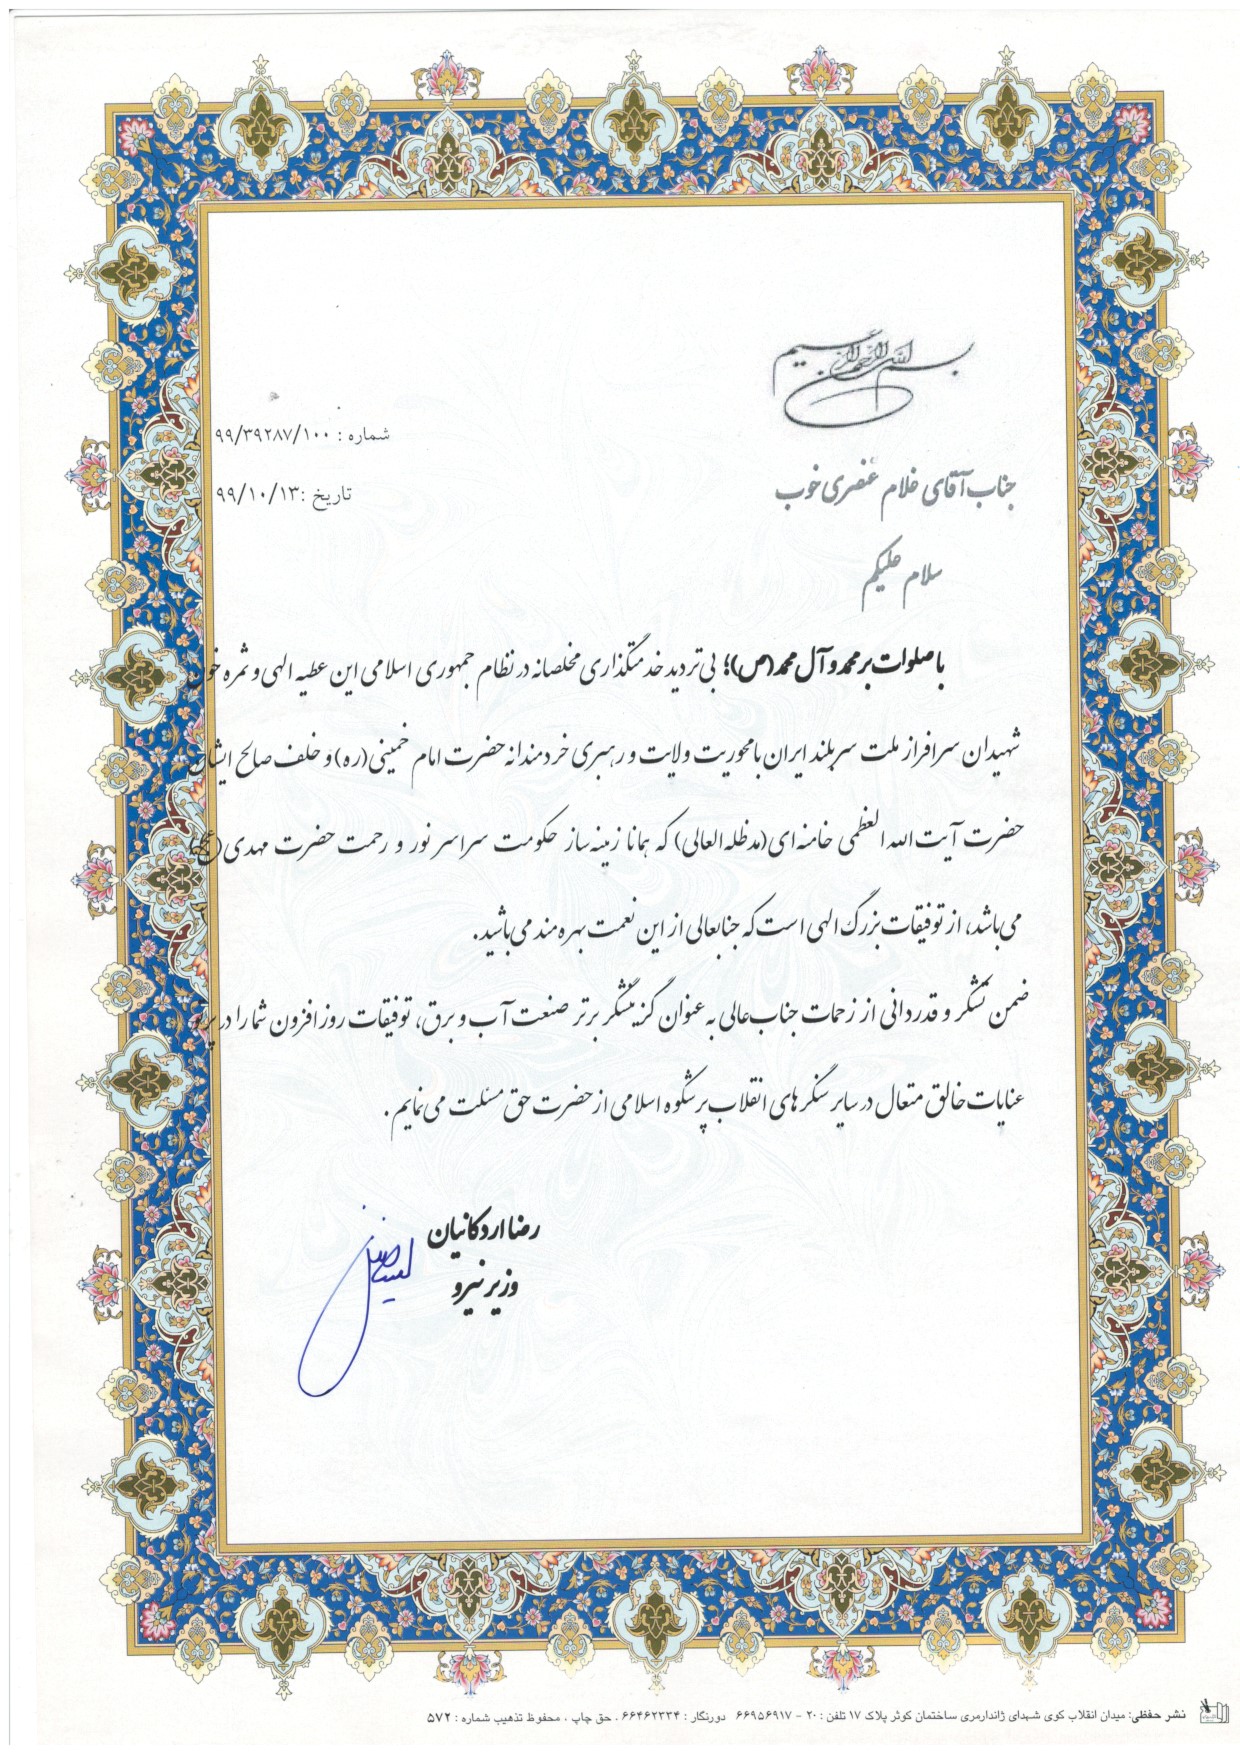 بسم الله الرحمن الرحیم
شماره : ۹۹/۳۹۲۸۷/۱۰۰
تاریخ :۹۹/۱۰/۱۳
جناب آقای غلام عنصری خوب
سلام علیکم
با صلوات بر محمد و آل محمد(ص)؛ بی تردید خدمتگذاری مخلصانه در نظام جمهوری اسلامی این عطیه الهی و ثمره خون
شهیدان سرافراز ملت سربلند ایران با محوریت ولایت و رهبری خردمندانه حضرت امام خمینی(ره) و خلف صالح ایشان
حضرت آیت الله العظمی خامنه ای(مدظله العالی) که همانا زمینه ساز حکومت سراسر نور و رحمت حضرت مهدی(عج)
می باشد، از توفیقات بزرگ الهی است که جنابعالی از این نعمت بهره مند می باشید.
ضمن تشکر و قدردانی از زحمات جناب عالی به عنوان گزینشگر برتر صنعت آب و برق، توفیقات روز افزون شما را در پرتو
عنایات خالق متعال در سایر سنگرهای انقلاب پرشکوه اسلامی از حضرت حق مسئلت می نمایم .
رضا اردکانیان
وزیر نیرو
نشر حفظی: میدان انقلاب کوی شهدای ژاندارمری ساختمان کوثر پلاک ۱۷ تلفن : ۲۰ - ۶۶۹۵۶۹۱۷ دورنگار : ۶۶۴۶۲۳۳۴ . حق چاپ ، محفوظ تذهیب شماره : ۵۷۲